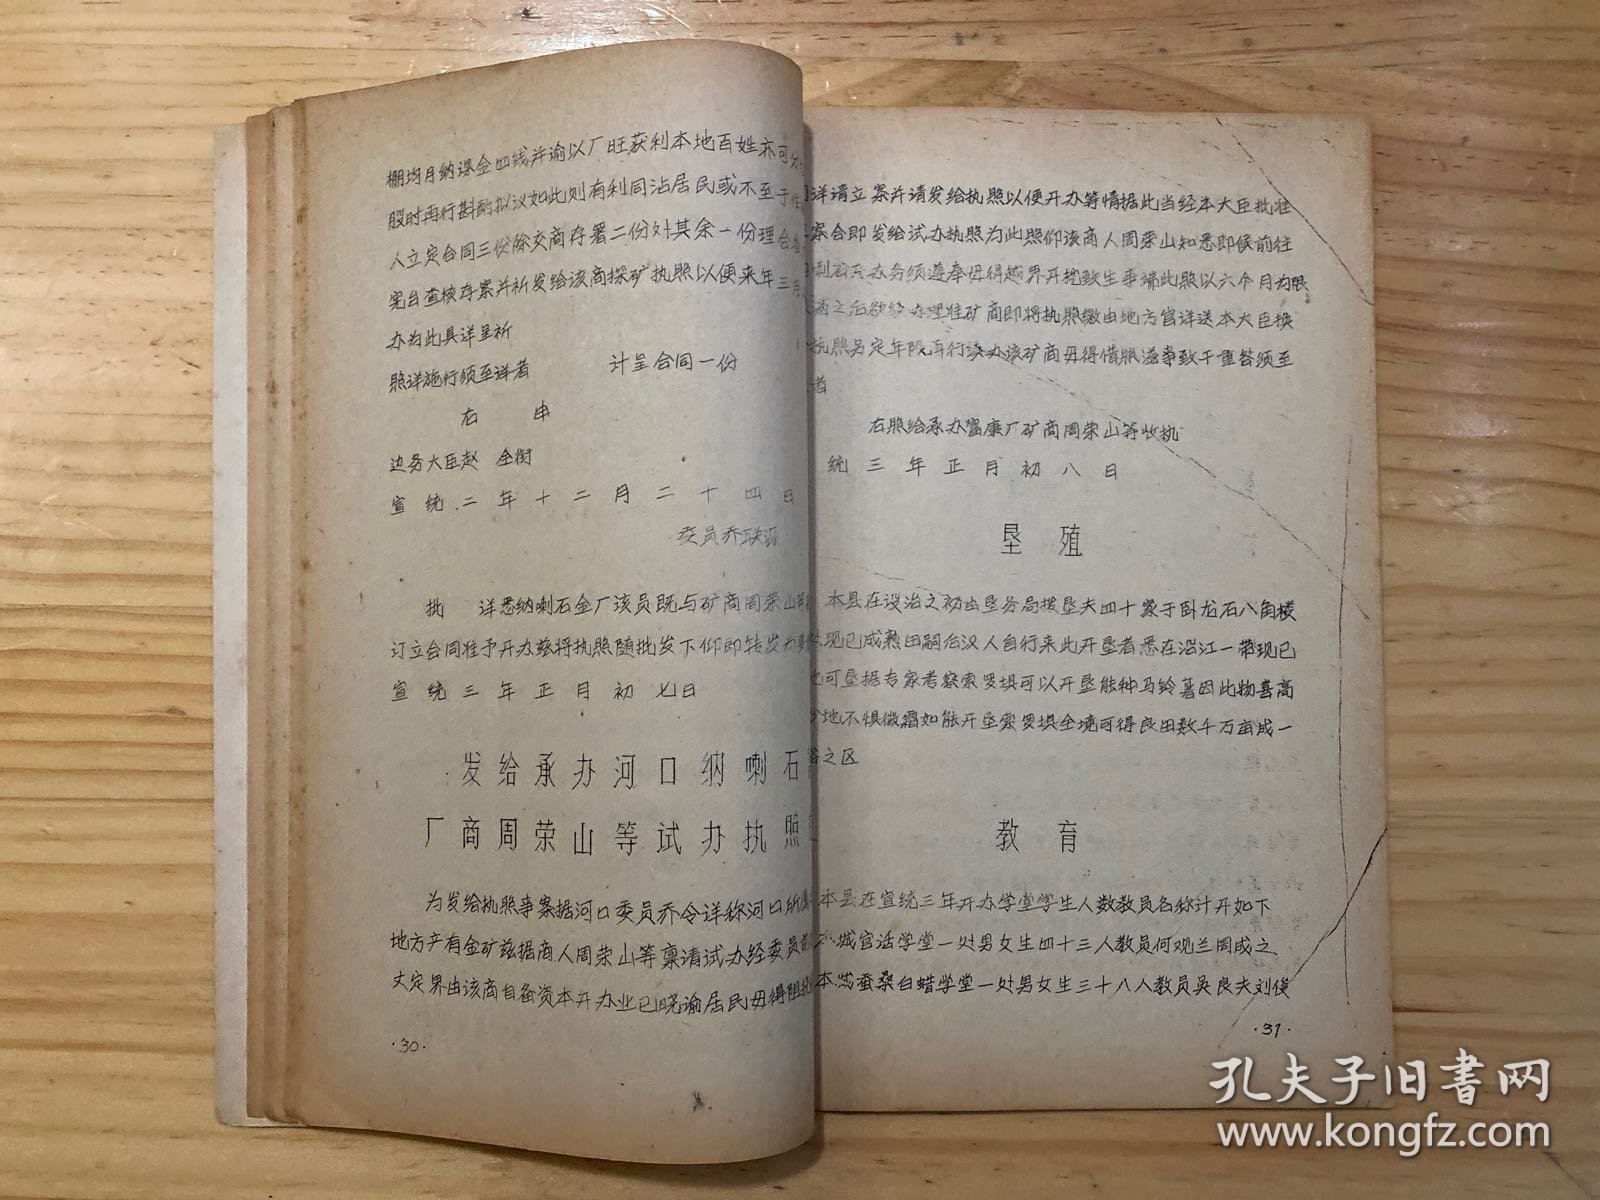 棚均月纳课金四钱并谕以厂旺获利本地百姓亦可分
股时再行斟酌拟议如此则有利同沾居民或不至于
人立定合同三份除交商存署二份外其余一份理合
宪台查核存案并祈发给该商探矿执照以便来年三月
办为此具详呈祈
照详施行须至详者 计呈合同一份
右 申
边务大臣赵 全衔
宣统二年十二月二十四日
委员乔联沅
批 详悉纳喇石金厂该员既与矿商周荣山等
订立合同准予开办兹将执照随批发下仰即转发为要
宣统三年正月初七日
发给承办河口纳喇石
厂商周荣山等试办执照
为发给执照事案据河口委员乔令详称河口所属
地方产有金矿兹据商人周荣山等禀请试办经委员
丈定界由该商自备资本开办业已晓谕居民毋得阻
·30·
详请立案并请发给执照以便开办等情据此当经本大臣批准
案合即发给试办执照为此照仰该商人周荣山知悉即候前往
喇石 办务须遵奉毋得越界开挖致生事端此照以六个月为限
满之后欲续办理准矿商即将执照缴由地方官详送本大臣换
执照另定年限再行续办该矿商毋得借照滋事致干重咎须至
者
右照给承办富康厂矿商周荣山等收执
统三年正月初八日
垦殖
本县在设治之初由垦务局拨垦夫四十家于卧龙石八角楼
现已成熟田嗣后汉人自行来此开垦者悉在沿江一带现已
也可垦据专家考察索罗埧可以开垦能种马铃薯因此物喜高
地不惧微霜如能开垦索罗埧全境可得良田数千万亩成一
裕之区
教育
本县在宣统三年开办学堂学生人数教员名称计开如下
城官话学堂一处男女生四十三人教员何观兰周成之
本 蚕桑白蜡学堂一处男女生三十八人教员吴良夫刘俊
·31·
孔夫子旧书网
www.kongfz.com